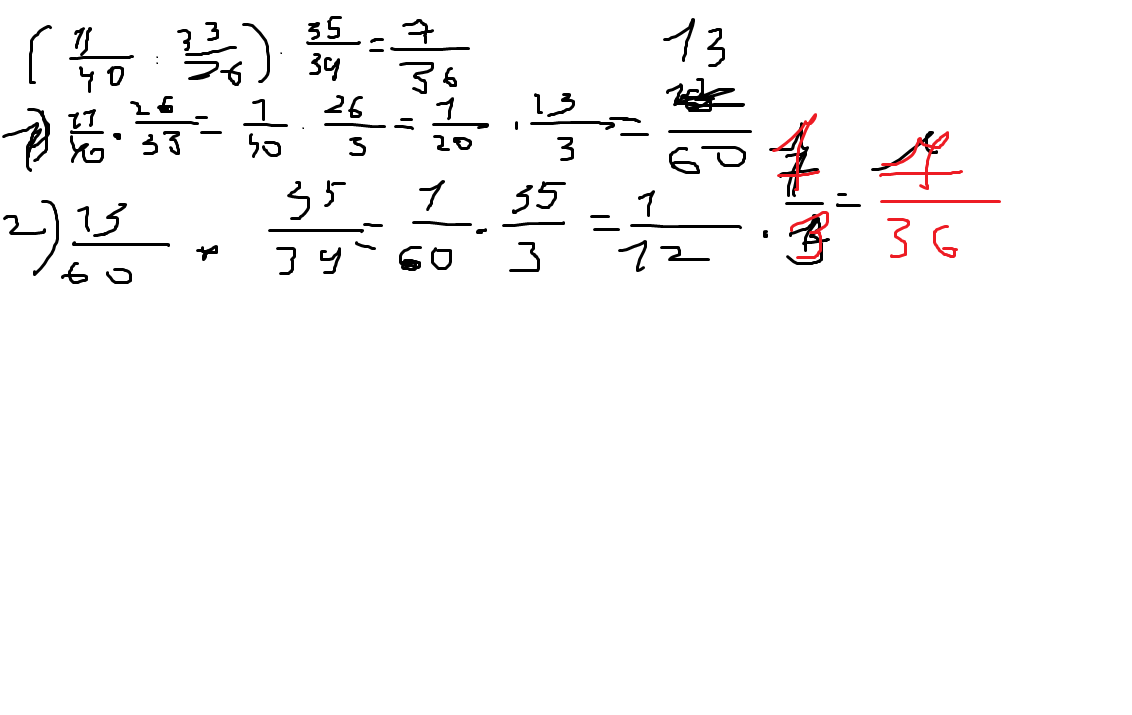 ( 11/40 : 33/26 ) · 35/39 = 7/36
1) 11/40 · 26/33 = 1/40 · 26/3 = 1/20 · 13/3 = 13/60
2) 13/60 · 35/39 = 1/60 · 35/3 = 1/12 · 7/3 = 7/36